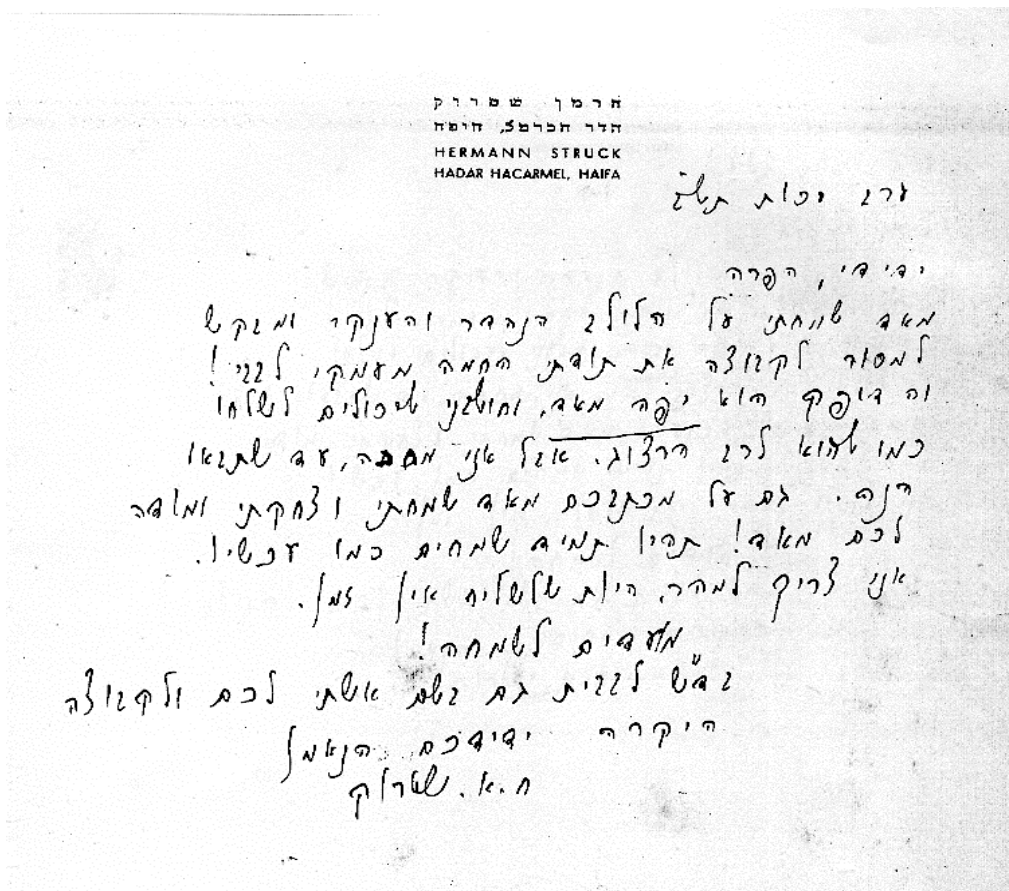 הרמן שטרוק
הדר הכרמל, חיפה
HERMANN STRUCK
HADAR HACARMEL, HAIFA
ערב סכות תש"ג
ידידי,
מאד שמחתי על הלולב הנהדר והענקי ומבקש
למסור לקבוצה את תודתי החמה מעמקי לבבי!
הוא יפה מאד, וחושבני שיכולים לשלחו
כמו שהוא לרב הרצוג. אבל אני מחכה, עד שתבאו
הנה. גם על מכתבכם מאד שמחתי וצחקתי ומודה
לכם מאד! תהיו תמיד שמחים כמו עכשיו.
אני צריך למהר, היות שלשליח אין זמן.
מועדים לשמחה!
בד"ש לבבית גם בשם אשתי לכם ולקבוצה
היקרה ידידכם הנאמן
ח.א. שטרוק